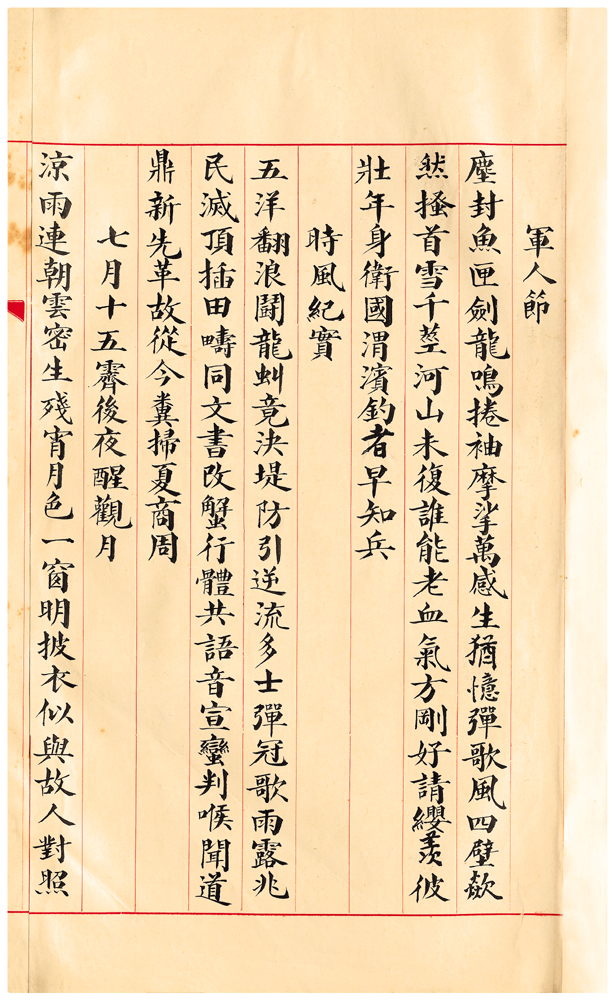 軍人節
塵封魚匣劍龍鳴捲袖摩挲萬感生猶憶彈歌風四壁欻
然搔首雪千莖河山未復誰能老血氣方剛好請纓羨彼
壯年身衛國渭濱釣者早知兵
時風紀實
五洋翻浪鬪龍虯竟決堤防引逆流多士彈冠歌雨露兆
民滅頂插田疇同文書改蟹行體共語音宣蠻判喉聞道
鼎新先革故從今糞掃夏商周
七月十五霽後夜醒觀月
涼雨連朝雲密生殘宵月色一窗明披衣似與故人對照